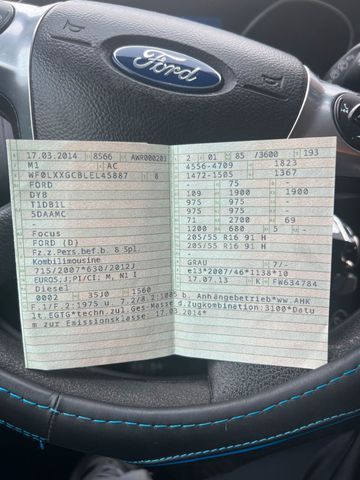 Ford
17.03.2014 8566 AWR000201
M1 AC
WF0LXXGCBLEL45887 8
FORD
DYB
T1DB1L
5DAAMC
-
Focus
FORD (D)
Fz.z.Pers.bef.b. 8 Spl.
Kombilimousine
715/2007*630/2012J
EURO5;J;PI/CI; M, N1 I
Diesel
0002 35J0 1560
2 01 85 /3600 193
4556-4709 1823
1472-1505 1367
- 75 -
109 1900 1900
975 975 -
975 975 -
71 2700 69
1200 680 5 -
205/55 R16 91 H
205/55 R16 91 H
-
GRAU 7/-
e13*2007/46*1138*10
17.07.13 K FW634784
F.1/F.2:1975 u. 7.2/8.2:1005 b. Anhängebetrieb*ww.AHK
lt.EGTG*techn.zul.Ges-Masse d.Zugkombination:3100*Datu
m zur Emissionsklasse: 17.03.2014*